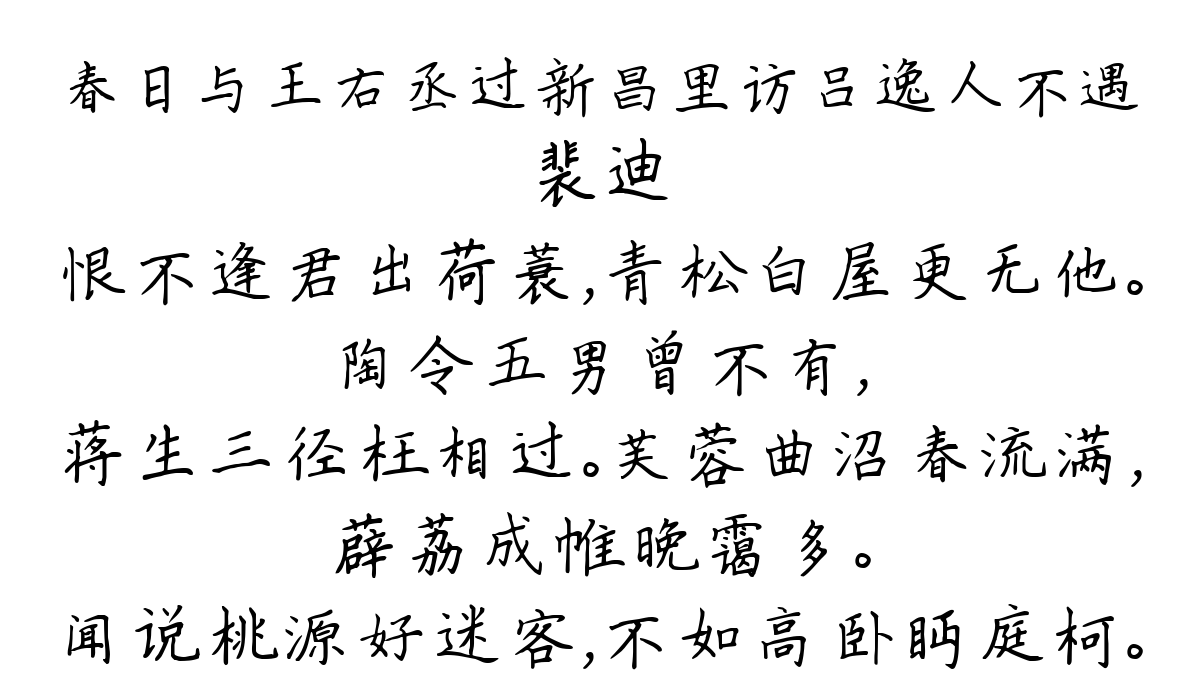 春日与王右丞过新昌里访吕逸人不遇
裴迪
恨不逢君出荷蓑,青松白屋更无他。
陶令五男曾不有,
蒋生三径枉相过。芙蓉曲沼春流满,
薜荔成帷晚霭多。
闻说桃源好迷客,不如高卧眄庭柯。